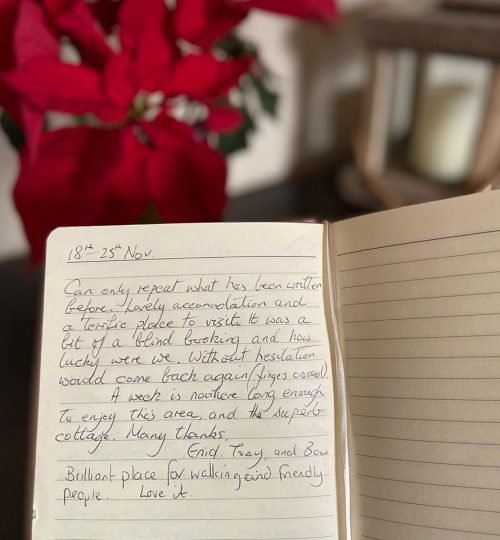 18th - 25th Nov.
Can only repeat what has been written
before. Lovely accomodation and
a terrific place to visit. It was a
bit of a blind booking and how
lucky were we. Without hesitation
would come back again (finges crossed).
A week is nowhere long enough
to enjoy this area, and the superb
cottage. Many thanks,
Enid, Tony, and
Brilliant place for walking and friendly
people. Love it.